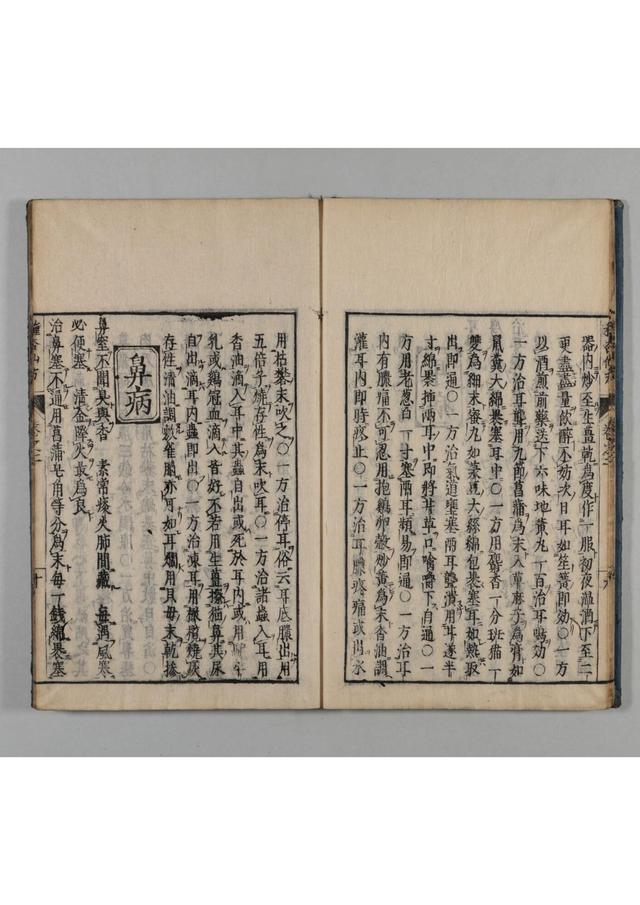 器内炒至生薑乾為度作一服初夜溫酒下至二
更盡量飲醉不妨次日耳如笙簧即効〇一方
以酒煎藥送下六味地黃丸一百治耳鳴効〇
一方治耳聾用九節菖蒲為末入蓖麻子為膏如
鼠糞大綿裹塞耳中〇一方用麝香一分班猫一
雙為細末蜜丸如蓁莧大絲綿包裹塞耳如熱取
出即通〇一方治氣道壅塞兩耳聾漬用甘遂半
寸綿裹揷兩耳中即將甘草口嚼嚥下自通〇一
方用老葱白一寸塞兩耳頻易即通〇一方治耳
內有膿痛不可忍用抱鷄卵殻炒黃為末香油調
灌耳內即時終止〇一方治耳膿疼痛或出水
用枯礬末吹之〇一方治停耳俗云耳底膿出用
五倍子燒存性為末吹耳〇一方治諸蟲入耳用
香油滴入耳中其蟲自出或死於耳內或用
乳或鷄冠血滴入皆好不若用生薑擦猫鼻其尿
自出滴耳內蟲即出〇一方治凍耳用橄欖燒灰
存性清油調敷雀脳亦可如耳爛用貝母末乾摻
鼻病
鼻窒不聞臭與香 素常痰火肺間藏 每遇風寒
必便塞 清金降火最為良
治鼻塞不通用菖蒲皂角等分為末毎一錢綿裹塞